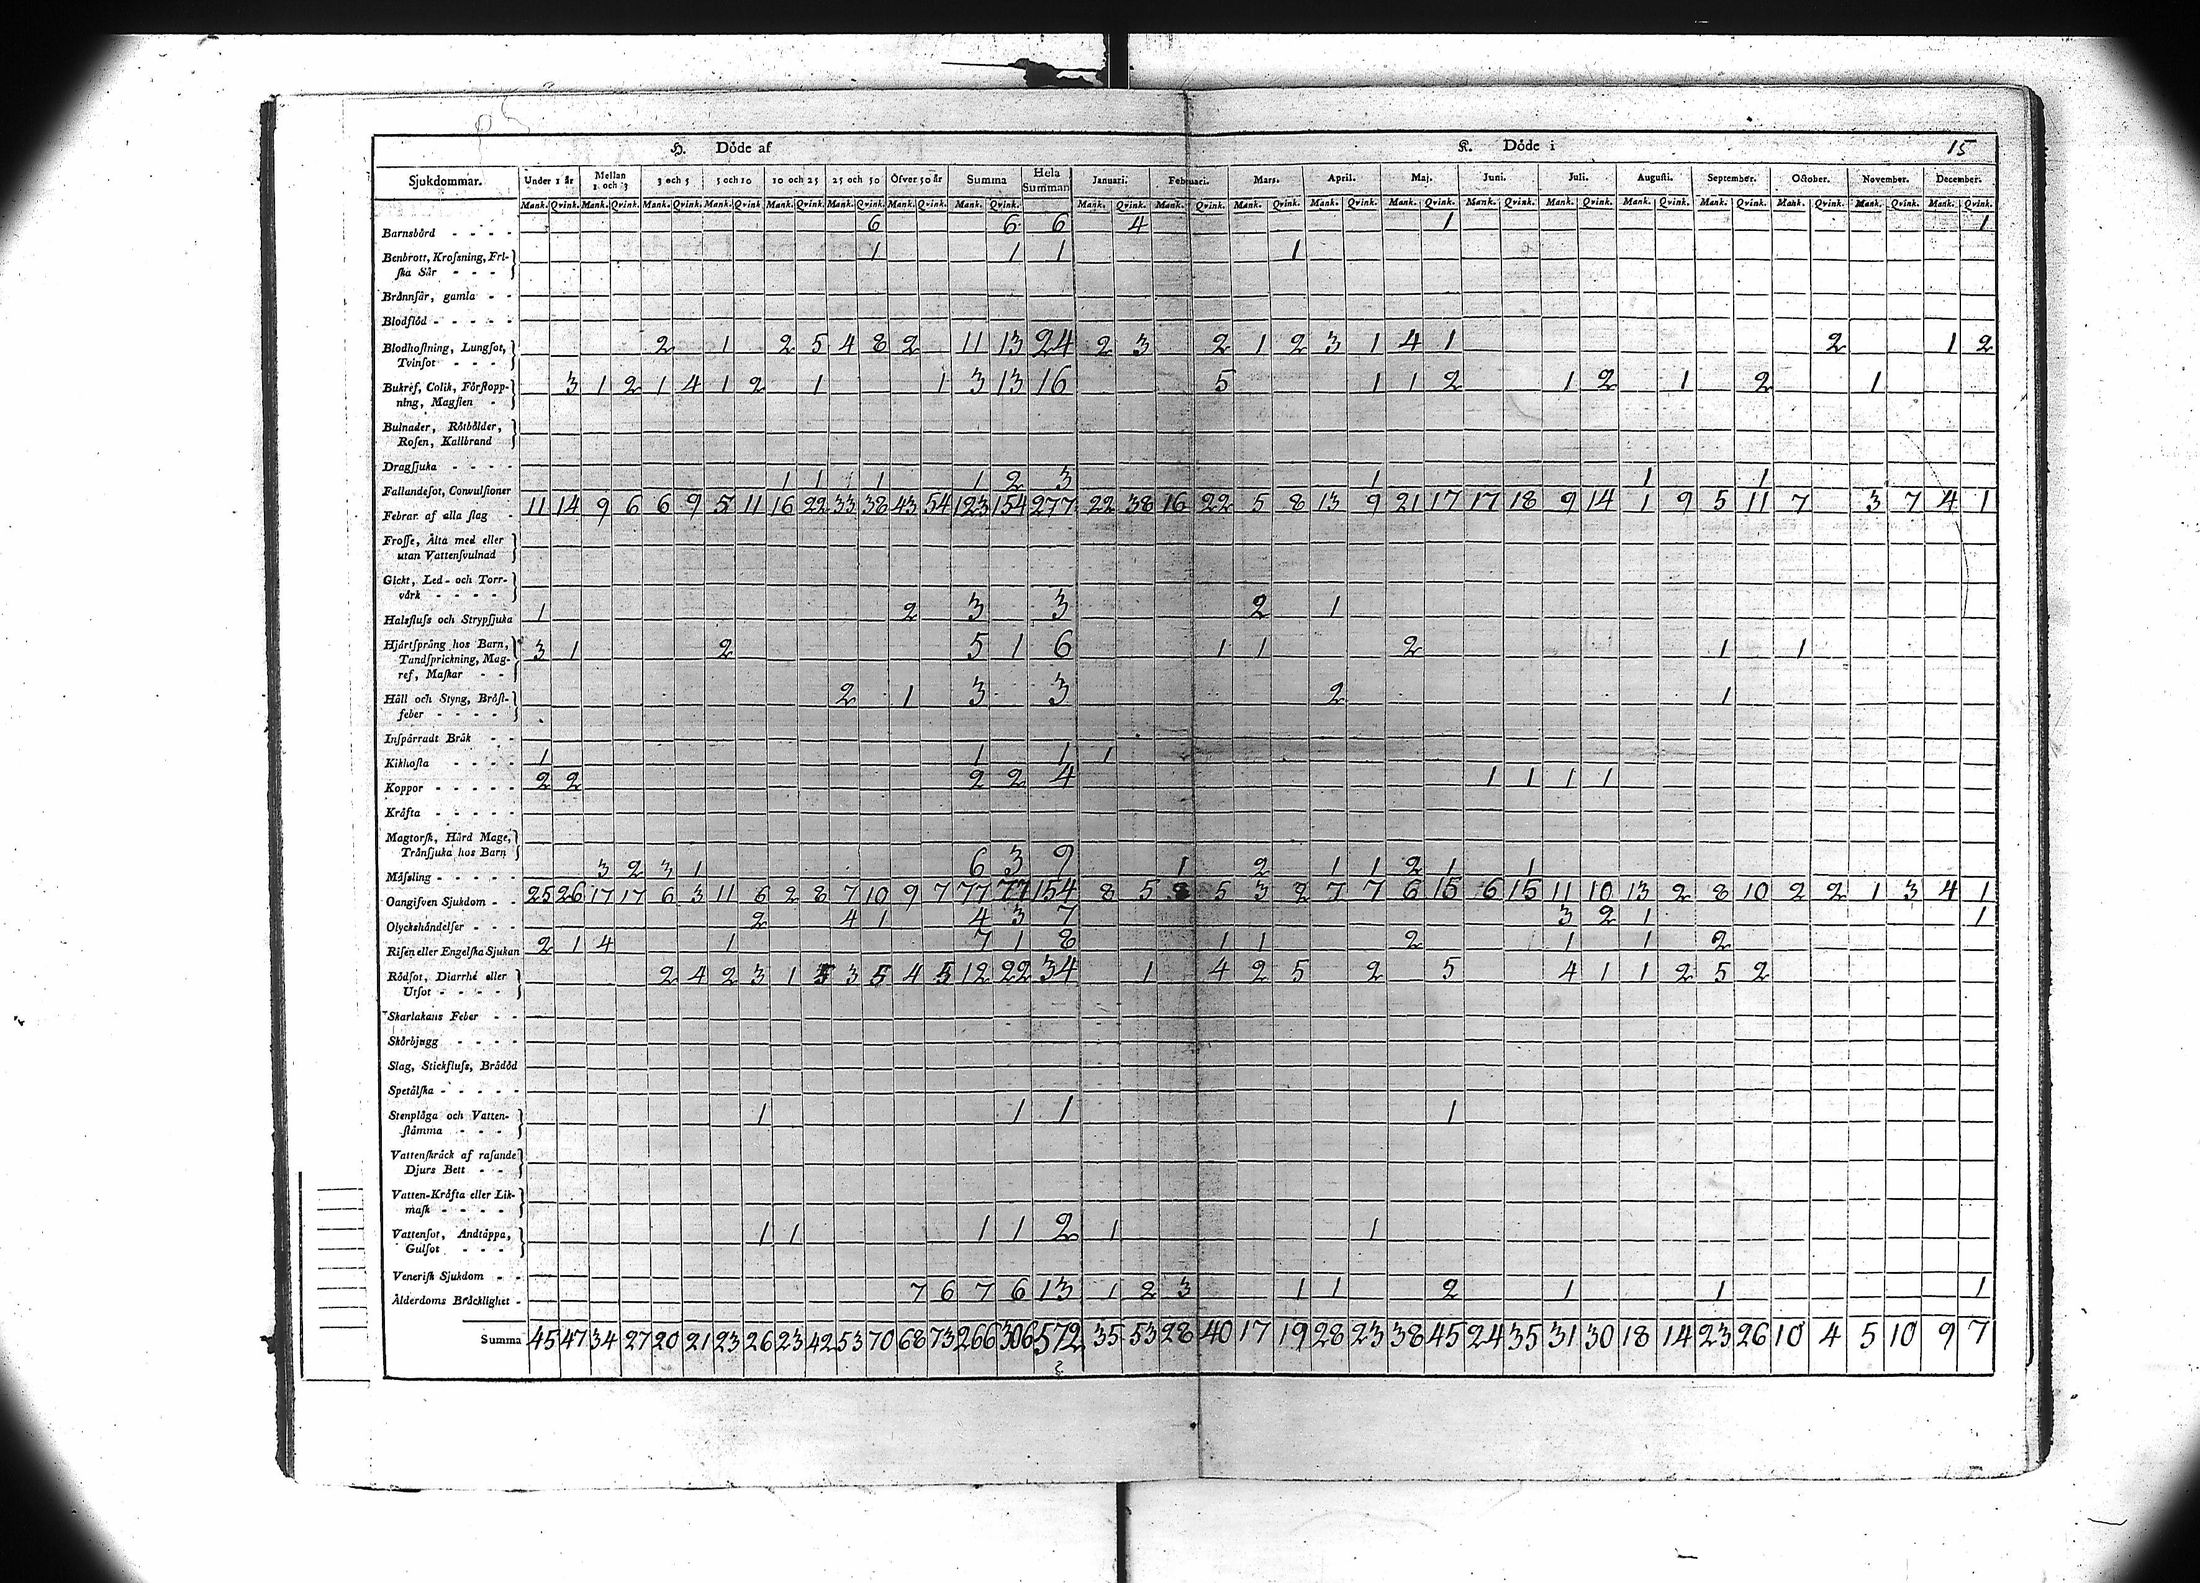 H. Döde af K. Döde i 15
Sjukdommar. Under 1 år Mellan 1 och 3 3 och 5 5 och 10 10 och 25 25 och 50 Öfver 50 år Summa Hela Summan Januari. Februari. Mars. April. Maj. Juni. Juli. Augusti. September. October. November. December.
Mank. Qvink. Mank. Qvink. Mank. Qvink. Mank. Qvink. Mank. Qvink. Mank. Qvink. Mank. Qvink. Mank. Qvink. Mank. Qvink. Mank. Qvink. Mank. Qvink. Mank. Qvink. Mank. Qvink. Mank. Qvink. Mank. Qvink. Mank. Qvink. Mank. Qvink. Mank. Qvink. Mank. Qvink. Mank. Qvink.
Barnsbörd 6 6 6 4 1 1
Benbrott, Krosſning, Fri- 1 1 1 1
ſka Sår
Brännſår, gamla
Blodflöd
Blodhoſtning, Lungſot, 2 1 2 5 4 8 2 11 13 24 2 3 2 1 2 3 1 4 1 2 1 2
Tvinſot
Bukref, Colik, Förſtopp- 3 1 2 1 4 1 2 1 1 3 13 16 5 1 1 2 1 2 1 2 1
ning, Magſten
Bulnader, Rötbölder,
Roſen, Kallbrand
Dragſjuka
Fallandeſot, Convulſioner 1 1 1 1 2 3 1 1 1
Febrar af alla ſlag 11 14 9 6 6 9 5 11 16 22 33 38 43 54 123 154 277 22 38 16 22 5 8 13 9 21 17 17 18 9 14 1 9 5 11 7 3 7 4 1
Froſſe, Älta med eller
utan Vattenſvulnad
Gickt, Led- och Torr-
värk
Halsfluſs och Strypſjuka 1 2 3 3 2 1
Hjärtſprång hos Barn, 3 1 2 5 1 6 1 1 2 1 1
Tandſprickning, Mag-
ref, Maſkar
Håll och Styng, Bröſt- 2 1 3 3 2 1
feber
Inſpärradt Bråk
Kikhoſta 1 1 1 1
Koppor 2 2 2 2 4 1 1 1 1
Kräfta
Magtorſk, Hård Mage,
Tränſjuka hos Barn
Mäſsling 3 2 3 1 6 3 9 1 2 1 1 2 1 1
Oangifven Sjukdom 25 26 17 17 6 3 11 6 2 8 7 10 9 7 77 77 154 8 5 8 5 3 2 7 7 6 15 6 15 11 10 13 2 8 10 2 2 1 3 4 1
Olyckshändelſer 2 4 1 4 3 7 3 2 1 1
Riſen eller Engelſka Sjukan 2 1 4 1 7 1 8 1 1 2 1 1 2
Rödſot, Diarrhé eller 2 4 2 3 1 5 3 5 4 5 12 22 34 1 4 2 5 2 5 4 1 1 2 5 2
Utſot
Skarlakans Feber
Skörbjugg
Slag, Stickfluſs, Brådöd
Spetälſka
Stenplåga och Vatten- 1 1 1 1
ſtämma
Vattenſkräck af raſande
Djurs Bett
Vatten-Kräfta eller Lik-
maſk
Vattenſot, Andtäppa, 1 1 1 1 2 1 1
Gulſot
Veneriſk Sjukdom
Ålderdoms Bräcklighet 7 6 7 6 13 1 2 3 1 1 2 1 1 1
Summa 45 47 34 27 20 21 23 26 23 42 53 70 68 73 266 306 572 35 53 28 40 17 19 28 23 38 45 24 35 31 30 18 14 23 26 10 4 5 10 9 7